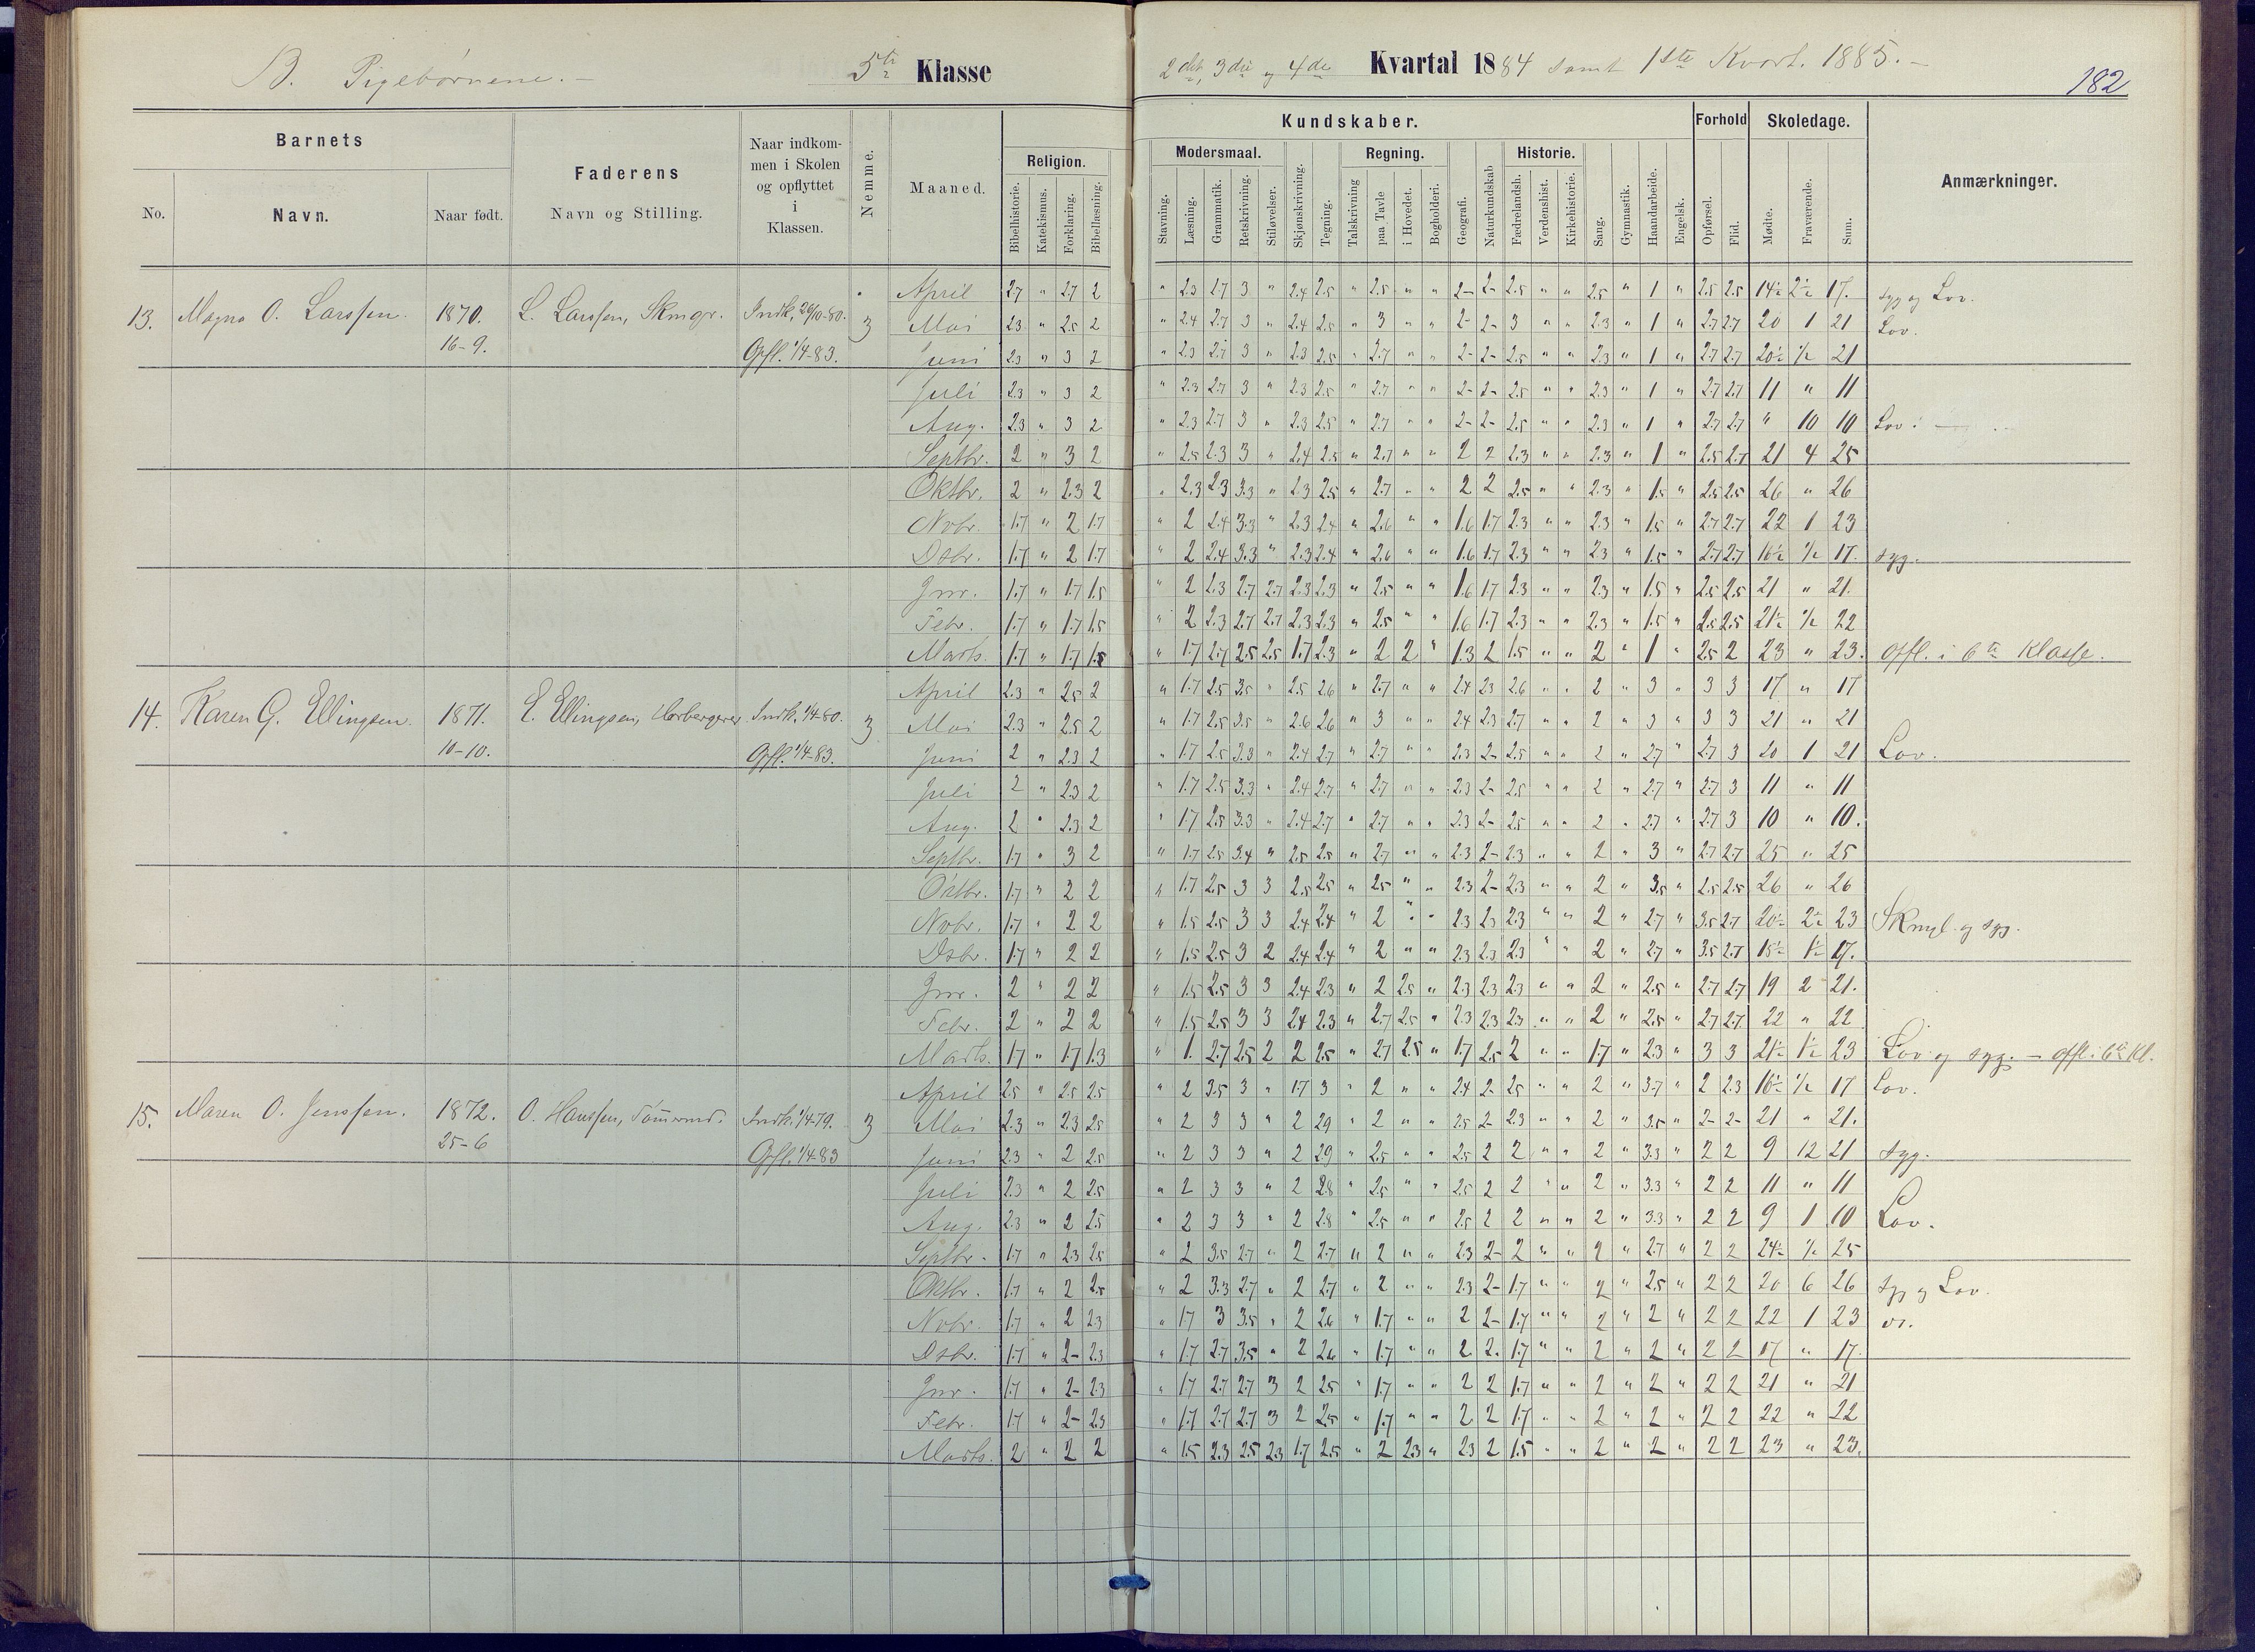 B. Pigebørnene. – 5te Klasse
2det, 3die og 4de Kvartal 1884 samt 1ste Kvart. 1885. –
182
Barnets
No. Navn. Naar født.
Faderens
Navn og Stilling.
Naar indkom-
men i Skolen
og opflyttet
i
Klassen.
Nemme.
Maaned.
Kundskaber.
Religion.
Bibelhistorie. Katekismus. Forklaring. Bibellæsning.
Modersmaal.
Stavning. Læsning. Grammatik. Retskrivning. Stiløvelser. Skjønskrivning. Tegning.
Regning.
Talskrivning paa Tavle i Hovedet. Bogholderi.
Geografi. Naturkundskab
Historie.
Fædrelandsh. Verdenshist. Kirkehistorie.
Sang. Gymnastik. Haandarbeide. Engelsk.
Forhold
Opførsel. Flid.
Skoledage.
Mødte. Fraværende. Sum.
Anmærkninger.
13. Magna O. Larssen. 1870. 16-9. L. Larssen, Skmgr. Indk. 20/10-80. Opfl. 1/4-83. 3
April 2.7 " 2.7 2 " 2.3 2.7 3 " 2.4 2.5 " 2.5 " " 2- 2- 2.5 " " 2.5 " 1 " 2.5 2.5 14½ 2½ 17. syg og Lov.
Mai 2.3 " 2.5 2 " 2.4 2.7 3 " 2.4 2.5 " 3 " " 2- 2- 3 " " 2.3 " 1 " 2.7 2.7 20 1 21 Lov.
Juni 2.3 " 3 2 " 2.3 2.7 3 " 2.3 2.5 " 2.7 " " 2- 2- 2.5 " " 2.3 " 1 " 2.7 2.7 20½ ½ 21
Juli 2.3 " 3 2 " 2.3 2.7 3 " 2.3 2.5 " 2.7 " " 2- 2- 2.5 " " 2.3 " 1 " 2.7 2.7 11 " 11
Aug. 2.3 " 3 2 " 2.3 2.7 3 " 2.3 2.5 " 2.7 " " 2- 2- 2.5 " " 2.3 " 1 " 2.7 2.7 " 10 10 Lov.
Septbr. 2 " 3 2 " 2.5 2.3 3 " 2.4 2.5 " 2.7 " " 2 2 2.3 " " 2.3 " 1 " 2.5 2.7 21 4 25
Oktbr. 2 " 2.3 2 " 2.3 2.3 3.3 " 2.3 2.5 " 2.7 " " 2 2 2.5 " " 2.3 " 1.5 " 2.5 2.5 26 " 26
Novbr. 1.7 " 2 1.7 " 2 2.4 3.3 " 2.3 2.4 " 2.6 " " 1.6 1.7 2.3 " " 2.3 " 1.5 " 2.7 2.7 22 1 23
Dsbr. 1.7 " 2 1.7 " 2 2.4 3.3 " 2.3 2.4 " 2.6 " " 1.6 1.7 2.3 " " 2.3 " 1.5 " 2.7 2.7 16½ ½ 17. syg.
Jnr. 1.7 " 1.7 1.5 " 2 2.3 2.7 2.7 2.3 2.3 " 2.5 " " 1.6 1.7 2.3 " " 2.3 " 1.5 " 2.5 2.5 21 " 21.
Febr. 1.7 " 1.7 1.5 " 2 2.3 2.7 2.7 2.3 2.3 " 2.5 " " 1.6 1.7 2.3 " " 2.3 " 1.5 " 2.5 2.5 21½ ½ 22
Marts. 1.7 " 1.7 1.5 " 1.7 2.7 2.5 2.5 1.7 2.3 " 2 2 " 1.3 2 1.5 " " 2 " 1 " 2.5 2 23 " 23. opfl. i 6te Klasse.
14. Karen G. Ellingsen. 1871. 10-10. E. Ellingsen, Herbergerer. Indk. 1/4-80. Opfl. 1/4-83. 3
April 2.3 " 2.5 2 " 1.7 2.5 3.5 " 2.5 2.6 " 2.7 " " 2.4 2.3 2.6 " " 2 " 3 " 3 3 17 " 17
Mai 2.3 " 2.5 2 " 1.7 2.5 3.5 " 2.6 2.6 " 3 " " 2.4 2.3 2.7 " " 2 " 3 " 3 3 21 " 21
Juni 2 " 2.3 2 " 1.7 2.5 3.3 " 2.4 2.7 " 2.7 " " 2.3 2- 2.5 " " 2 " 2.7 " 2.7 3 20 1 21 Lov.
Juli 2 " 2.3 2 " 1.7 2.5 3.3 " 2.4 2.7 " 2.7 " " 2.3 2- 2.5 " " 2 " 2.7 " 2.7 3 11 " 11
Aug. 2 " 2.3 2 " 1.7 2.5 3.3 " 2.4 2.7 " 2.7 " " 2.3 2- 2.5 " " 2 " 2.7 " 2.7 3 10 " 10.
Septbr. 1.7 " 3 2 " 1.7 2.5 3.4 " 2.5 2.5 " 2.7 " " 2.3 2- 2.3 " " 2 " 3 " 2.7 2.7 25 " 25
Oktbr. 1.7 " 2 2 " 1.7 2.5 3 3 2.5 2.5 " 2.5 " " 2.3 2- 2.3 " " 2 " 3.5 " 2.5 2.5 26 " 26
Novbr. 1.7 " 2 2 " 1.5 2.5 3 3 2.4 2.4 " 2 " " 2.3 2.3 2.3 " " 2 " 2.7 " 3.5 2.7 20½ 2½ 23 Skmgl. og syg.
Dsbr. 1.7 " 2 2 " 1.5 2.5 3 2 2.4 2.4 " 2 " " 2.3 2.3 2.3 " " 2 " 2.7 " 3.5 2.7 15½ 1½ 17.
Jnr. 2 " 2 2 " 1.5 2.5 3 3 2.4 2.3 " 2 2.5 " 2.3 2.3 2.3 " " 2 " 2.5 " 2.7 2.7 19 2 21.
Febr. 2 " 2 2 " 1.5 2.5 3 3 2.4 2.3 " 2.7 2.5 " 2.3 2.3 2.3 " " 2 " 2.5 " 2.7 2.7 22 " 22
Marts. 1.7 " 1.7 1.3 " 1. 2.7 2.5 2 2 2.5 " 2.7 2.5 " 1.7 2.5 2 " " 1.7 " 2.3 " 3 3 21½ 1½ 23 Lov og syg. – opfl. i 6te Kl.
15. Maren O. Jenssen. 1872. 25-6 O. Hanssen, Tømmermd. Indk. 1/4-79. Opfl. 1/4-83 3
April 2.5 " 2.5 2.5 " 2 3.5 3 " 1.7 3 " 2 " " 2.4 2- 2.5 " " 2 " 3.7 " 2 2.3 16½ ½ 17 Lov.
Mai 2.3 " 2.3 2.5 " 2 3 3 " 2 2.9 " 2 " " 2.5 2- 2.3 " " 2 " 3.5 " 2- 2- 21 " 21.
Juni 2.3 " 2 2.5 " 2 3 3 " 2 2.9 " 2.5 " " 2.5 2 2 " " 2 " 3.3 " 2 2 9 12 21 syg.
Juli 2.3 " 2 2.5 " 2 3 3 " 2 2.8 " 2.5 " " 2.5 2 2 " " 2 " 3.3 " 2 2 11 " 11
Aug. 2.3 " 2 2.5 " 2 3 3 " 2 2.8 " 2.5 " " 2.5 2 2 " " 2 " 3.3 " 2 2 9 1 10 Lov.
Septbr. 1.7 " 2.3 2.5 " 2 3.5 2.7 " 2 2.7 " 2 " " 2.3 2- 2 " " 2 " 2.7 " 2 2 24½ ½ 25
Oktbr. 1.7 " 2 2.5 " 2 3.3 2.7 " 2 2.7 " 2 " " 2.3 2- 1.7 " " 2 " 2.5 " 2 2 20 6 26 syg og Lov.
Novbr. 1.7 " 2 2.3 " 1.7 3 3.5 " 2 2.6 " 1.7 " " 2 2- 1.7 " " 2 " 2 " 2 2 22 1 23
Dsbr. 1.7 " 2- 2.3 " 1.7 2.7 3.5 " 2 2.6 " 1.7 " " 2 2. 1.7 " " 2 " 2 " 2 2 17 " 17.
Jnr. 1.7 " 2- 2.3 " 1.7 2.7 2.7 3 2 2.5 " 1.7 " " 2 2 1.7 " " 2 " 2 " 2 2 21 " 21
Febr. 1.7 " 2- 2.3 " 1.7 2.7 2.7 3 2 2.5 " 1.7 " " 2 2 1.7 " " 2 " 2 " 2 2 22 " 22
Marts. 2 " 2 2 " 1.5 2.3 2.5 2.3 1.7 2.5 " 2 2.3 " 2.3 2 1.5 " " 2 " 2 " 2 2 23 " 23.